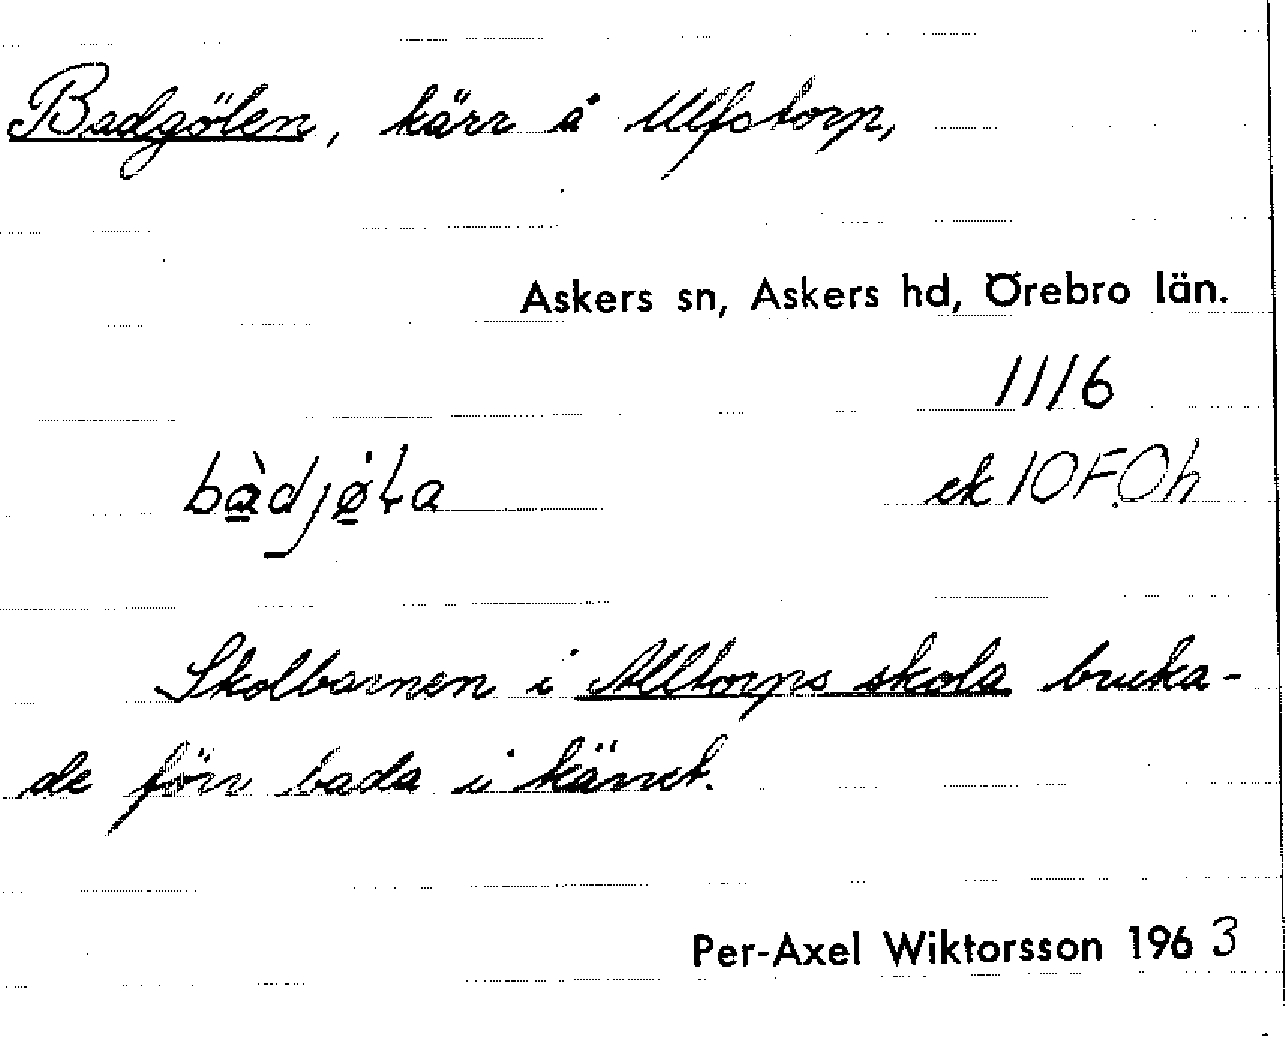 Badgölen, kärr å Ulfstorp,
Askers sn, Askers hd, Örebro län.
11/6
bàdjø̀ɫa
ek 10F0h
Skolbarnen i Alltorps skola bruka-
de förr bada i kärret.
Per-Axel Wiktorsson 1963